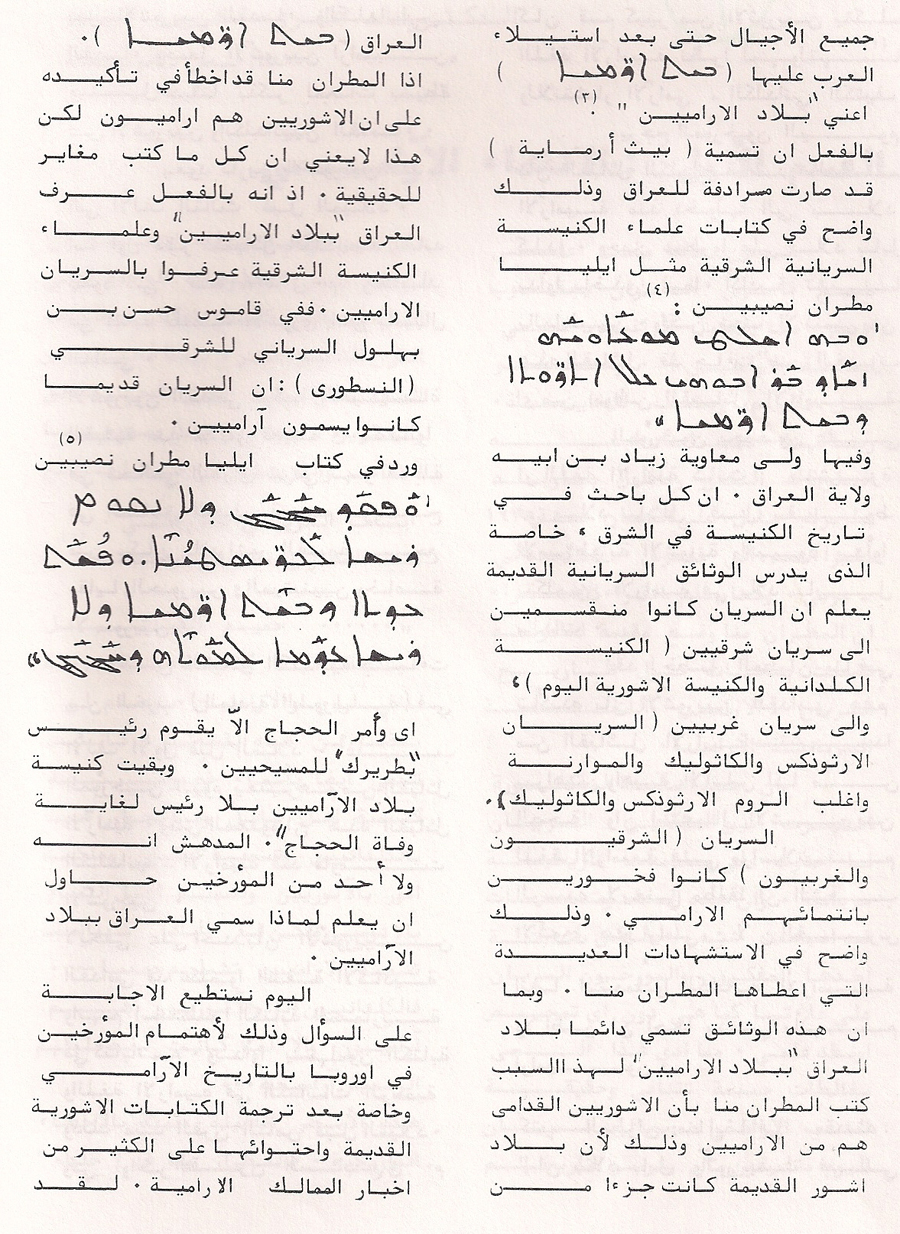 جميع الأجيال حتى بعد استيلاء
العرب عليها (ܒܝܬ ܐܪ̈ܡܝܐ)
اعني "بلاد الاراميين" (٣).
بالفعل ان تسمية ( بيث أرماية )
قد صارت مرادفة للعراق وذلك
واضح في كتابات علماء الكنيسة
السريانية الشرقية مثل ايليا
مطران نصيبين (٤) :
ܐܪ̈ܡܝܐ ܕܒܝܬ
وفيها ولى معاوية زياد بن ابيه
ولاية العراق . ان كل باحث في
تاريخ الكنيسة في الشرق ، خاصة
الذى يدرس الوثائق السريانية القديمة
يعلم ان السريان كانوا منقسمين
الى سريان شرقيين ( الكنيسة
الكلدانية والكنيسة الاشورية اليوم )،
والى سريان غربيين ( السريان
الارثوذكس والكاثوليك والموارنة
واغلب الروم الارثوذكس والكاثوليك).
السريان ( الشرقيون
والغربيون ) كانوا فخورين
بانتمائهم الارامي . وذلك
واضح في الاستشهادات العديدة
التي اعطاها المطران منا . وبما
ان هذه الوثائق تسمي دائما بلاد
العراق "ببلاد الاراميين" لهذ االسبب
كتب المطران منا بأن الاشوريين القدامى
هم من الاراميين وذلك لأن بلاد
اشور القديمة كانت جزءا من
العراق ( ܒܝܬ ܐܪ̈ܡܝܐ ).
اذا المطران منا قد اخطأ في تأكيده
على ان الاشوريين هم اراميون لكن
هذا لايعني ان كل ما كتب مغاير
للحقيقية . اذ انه بالفعل عرف
العراق "ببلاد الاراميين" وعلماء
الكنيسة الشرقية عرفوا بالسريان
الاراميين . ففي قاموس حسن بن
بهلول السرياني للشرقي
(النسطورى) : ان السريان قديما
كانوا يسمون آراميين .
وردفي كتاب ايليا مطران نصيبين (٥)
ܘܠܐ ܢܩܘܡ
ܪܝܫܐ
ܕܒܝܬ ܐܪ̈ܡܝܐ ܕܠܐ
ܪܝܫܐ
اى وأمر الحجاج الاّ يقوم رئيس
"بطريرك" للمسيحيين . وبقيت كنيسة
بلاد الآراميين بلا رئيس لغاية
وفاة الحجاج". المدهش انه
ولا أحد من المؤرخين حاول
ان يعلم لماذا سمي العراق ببلاد
الآراميين .
اليوم نستطيع الاجابة
على السؤال وذلك لأهتمام المؤرخين
في اوروبا بالتاريخ الآرامي
وخاصة بعد ترجمة الكتابات الاشورية
القديمة واحتوائها على الكثير من
اخبار الممالك الارامية . لقد